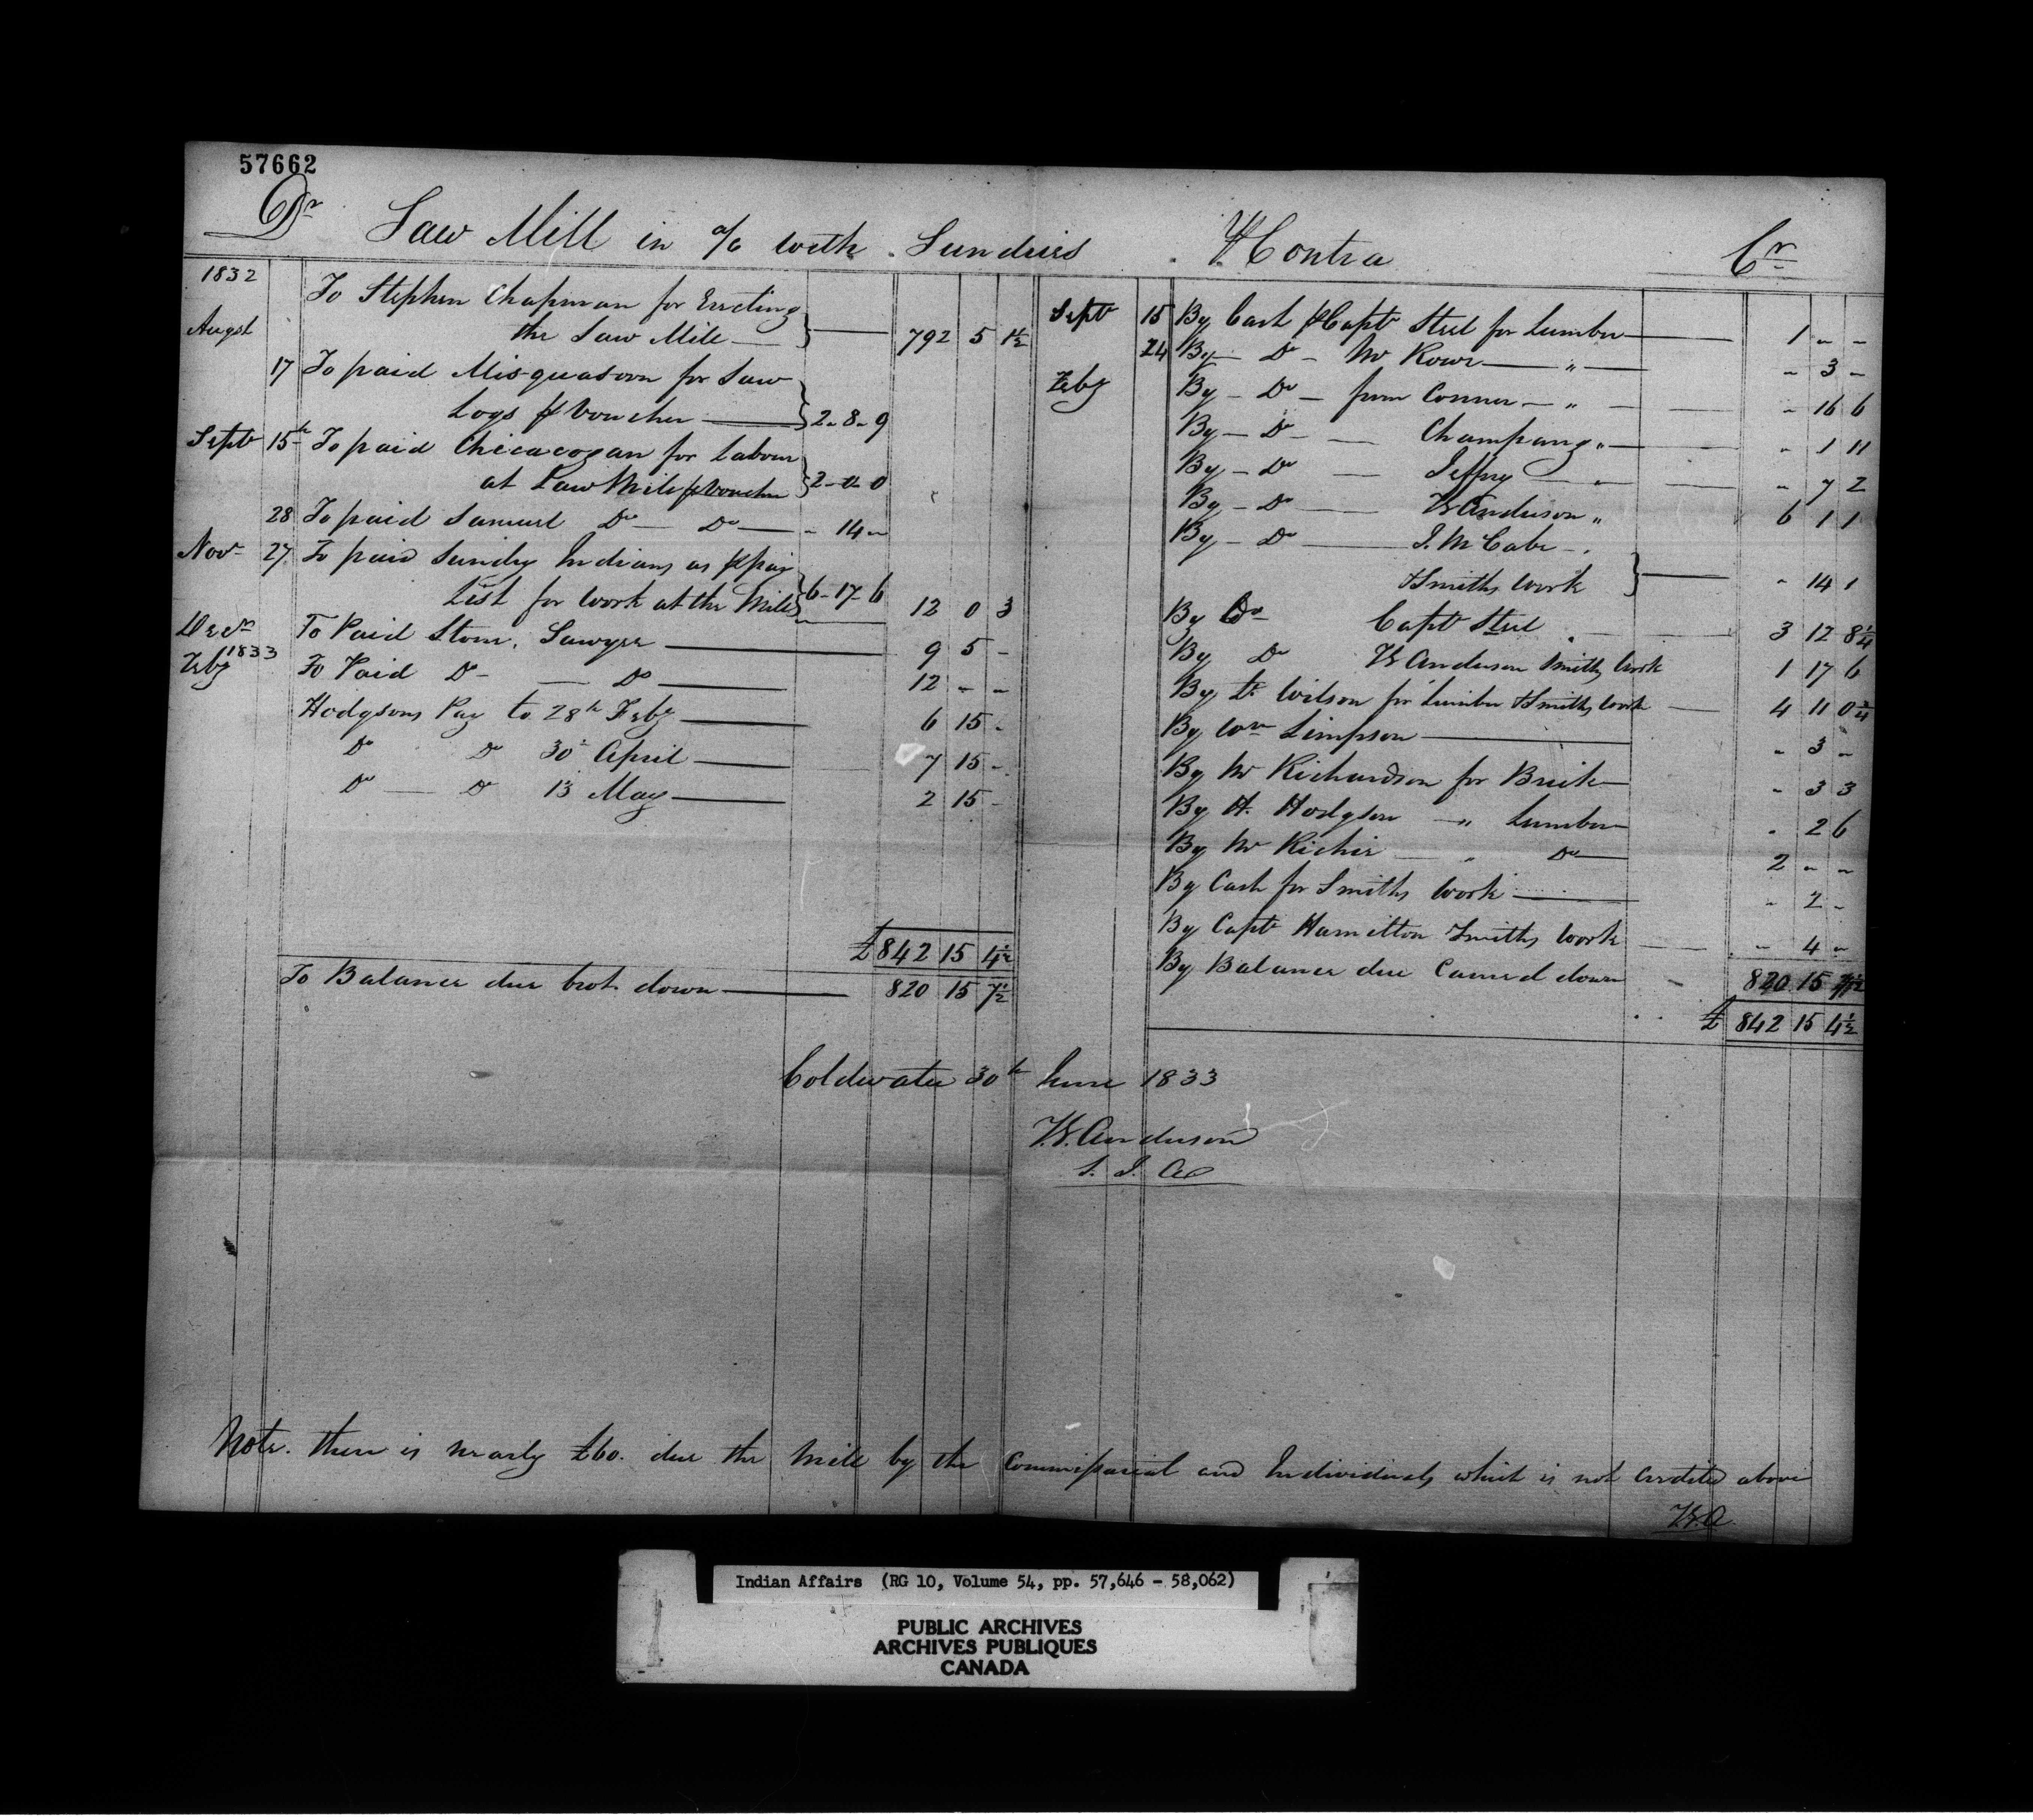 57662
Dr Saw Mill in a/c with Sundries
1832
To Stephen Chapman for Erecting
Augst the Saw Mill 792 5 1½
17 To paid Misquasoon for Saw
Logs p Voucher 2-8-9
Sept 15th To paid Chicacozan for Labour
at Saw Mill p Voucher 2-0-0
28 To paid Samuel Do Do - 14 -
Novr 27 To paid Sundry Indians as p pay
List for work at the Mill 6-17-6 12 0 3
Decr To Paid Stone, Sawyer 9 5 -
1833
Feby To Paid Do - Do 12 - -
Hodgsons Pay to 28th Feby 6 15 -
Do Do 30th April 7 15 -
Do Do 13 May 2 15 -
£ 842 15 4½
To Balance due brot. down 820 15 7½
Contra Cr
Sept 15 By Cash p Capt Steel for Lumber 1 - -
24 By - Do - Mr Rowe " - 3 -
Feby By - Do - from Conner - " - 16 6
By - Do - Champang " - 1 11
By - Do Jeffry " - 7 2
By - Do TG Anderson " 6 1 1
By - Do J. McCabe
Smiths work - 14 1
By Do Capt Steel 3 12 8¼
By Do TG Anderson Smiths work 1 17 6
By Lt Wilson for Lumber & Smiths work 4 11 0¾
By Wm Simpson - 3 -
By Mr Richardson for Brick - 3 3
By H. Hodgson " Lumber - 2 6
By Mr Richie " Do 2 - -
By Cash for Smiths work - 2 -
By Capt Hamilton Smiths work - 4 -
By Balance due Carried down 820 15 7½
£ 842 15 4½
Coldwater 30th June 1833
T.G. Anderson
S. I. A
Note. there is nearly £60. due the Mill by the Commissariat and Individuals which is not credited above
T.G.A.
Indian Affairs (RG 10, Volume 54, pp. 57,646 - 58,062)
PUBLIC ARCHIVES
ARCHIVES PUBLIQUES
CANADA